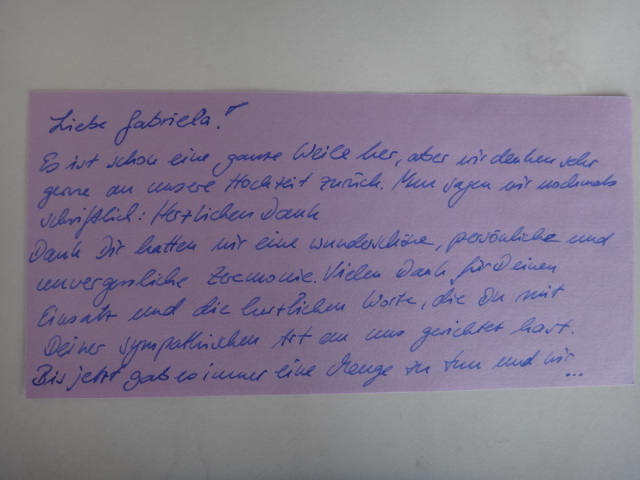 Liebe Gabriela!
Es ist schon eine ganze Weile her, aber wir denken sehr
gerne an unsere Hochzeit zurück. Nun sagen wir nochmals
schriftlich: Herzlichen Dank
Dank Dir hatten wir eine wunderschöne, persönliche und
unvergessliche Zeremonie. Vielen Dank für Deinen
Einsatz und die herzlichen Worte, die Du mit
Deiner sympathischen Art an uns gerichtet hast.
Bis jetzt gab es immer eine Menge zu tun und wir...